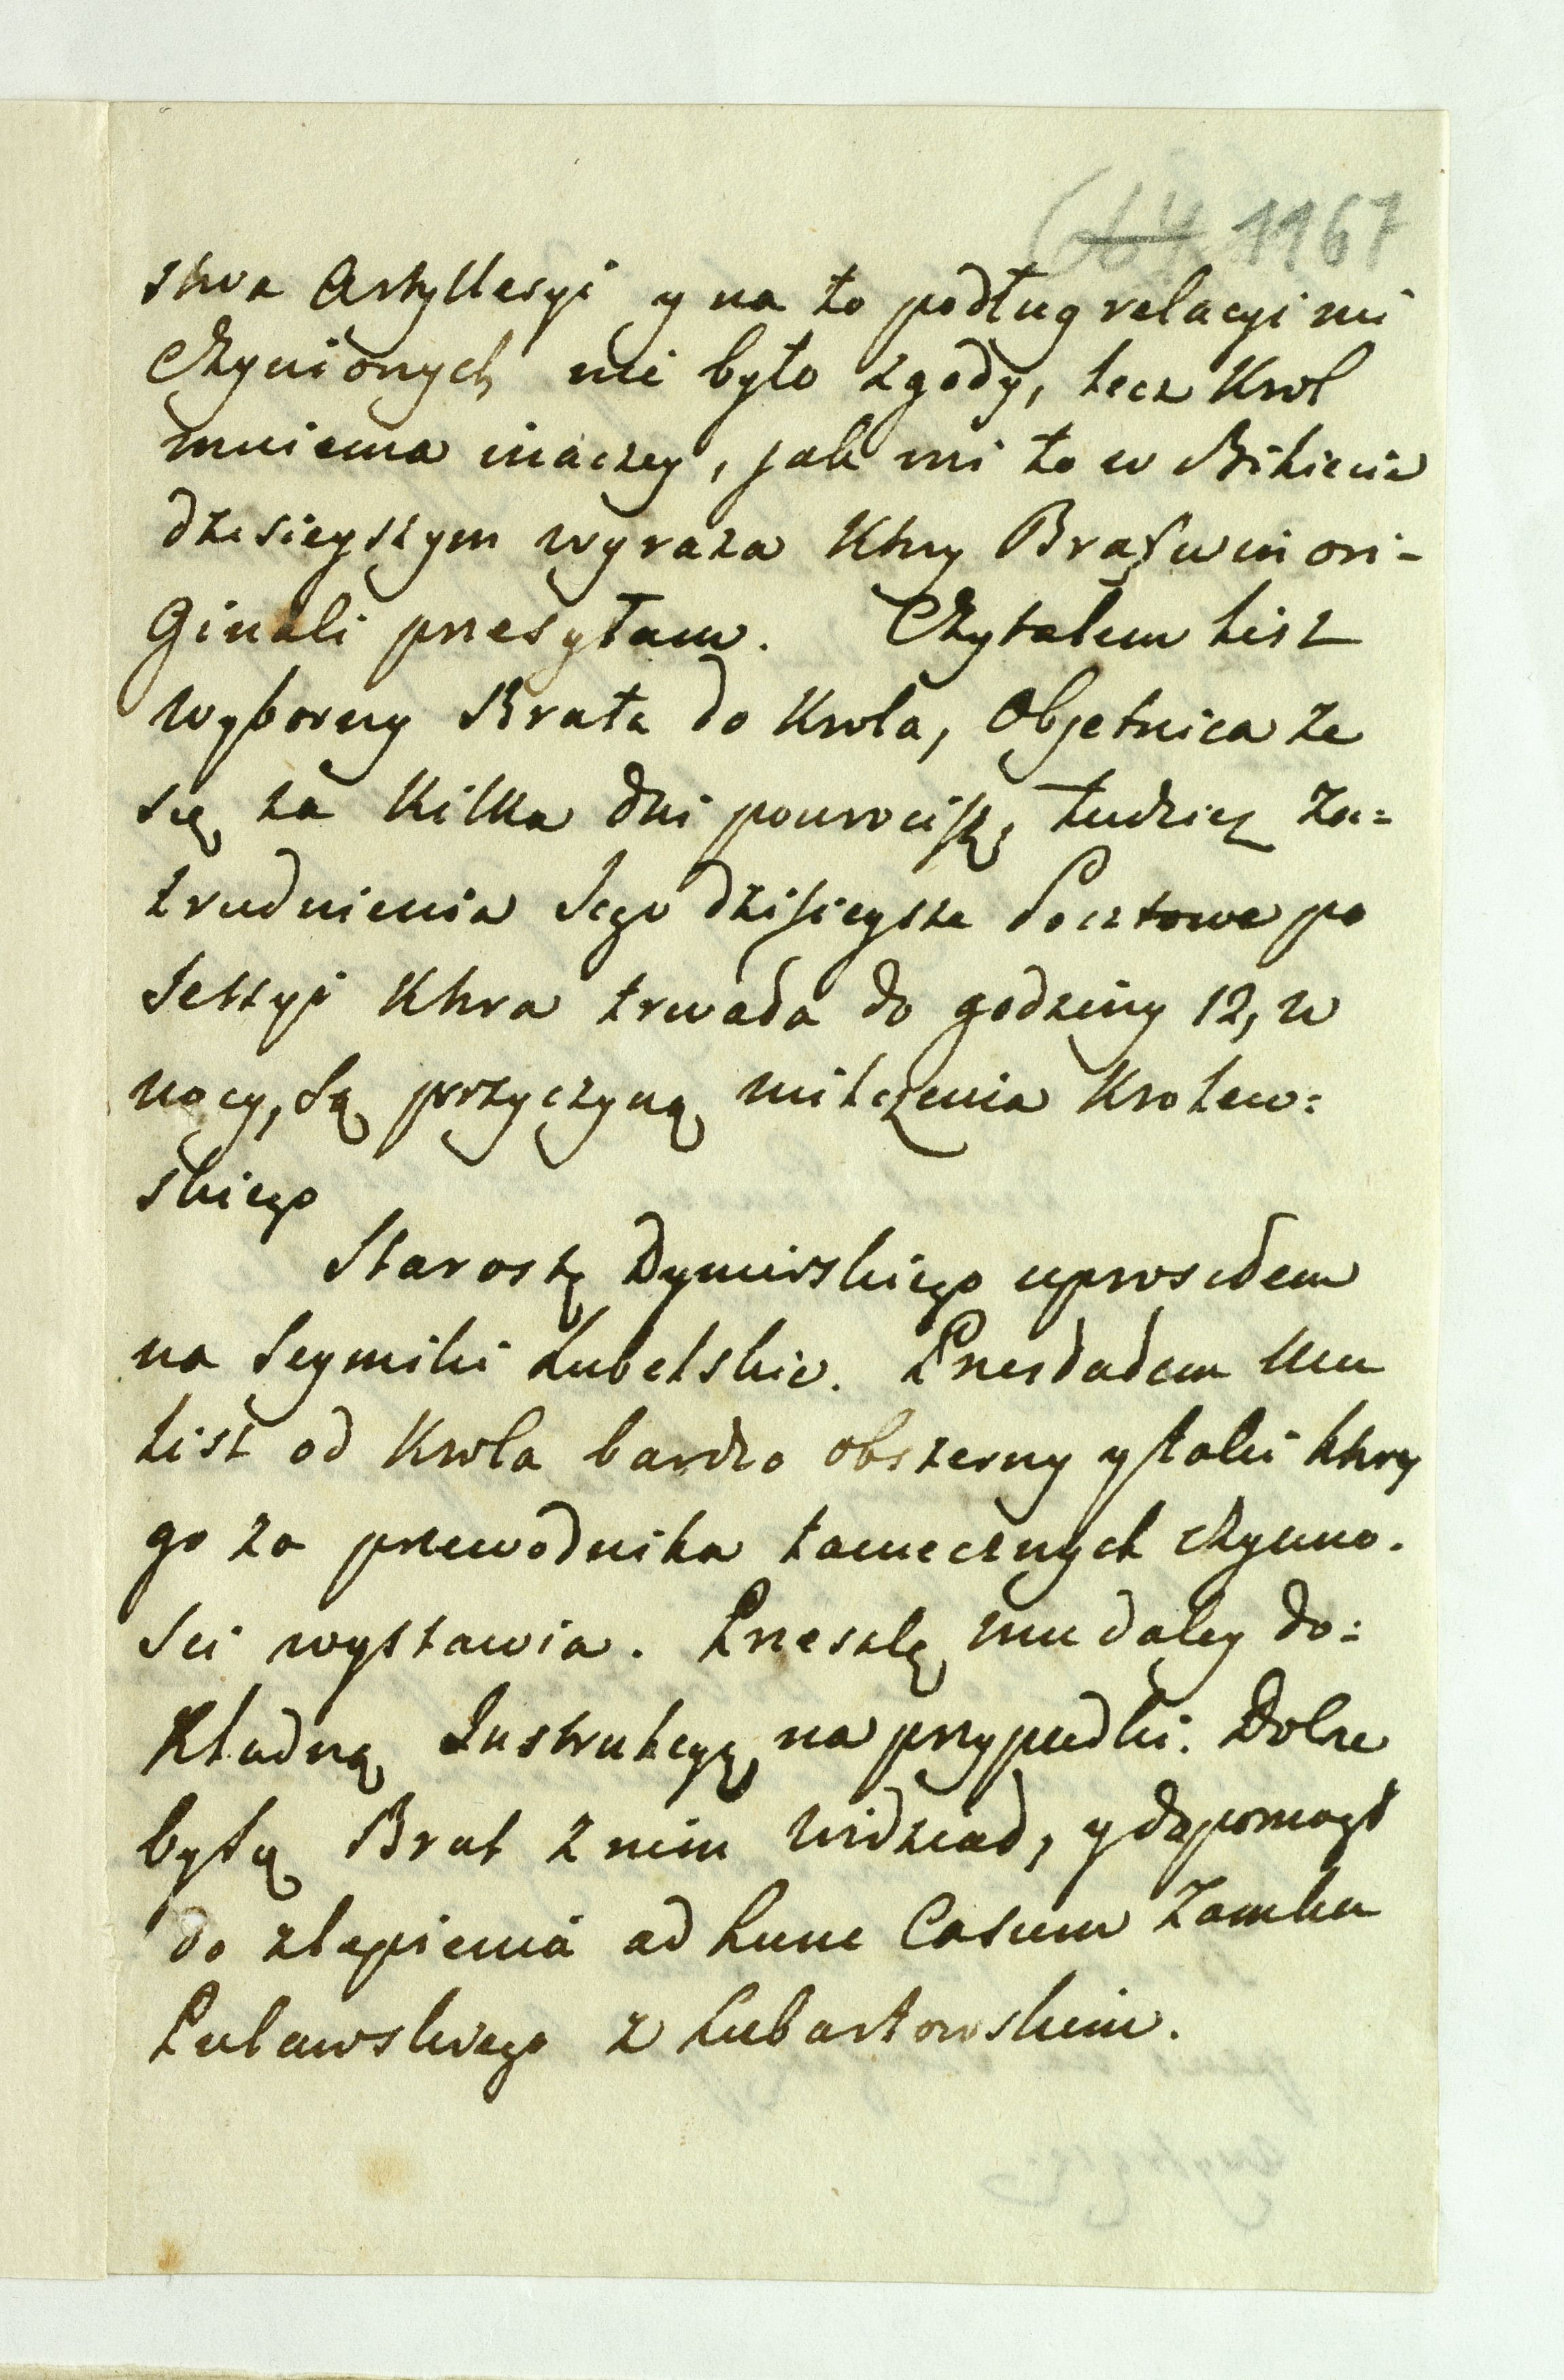 (64 1167
stwa Artylleryi y na to podług relacyi mi
Czynionych nie było zgody, lecz Krol
mniema inaczey, jak mi to w Bilecie
dzisieyszym wyraza Ktory Bratu in ori-
Ginali przesyłam. Czytalem list
wyborny Brata do Krola, Objetnica ze
się za Kilka dni powrocisz, tudziez Za=
trudnienia Jego dzisieysze Pocztowe po
Sessyi Ktora trwała do godziny 12, w
nocy, Są przyczyną milczenia Krolew=
skiego
Starostę Dymirskiego uprosiłem
na Seymiki Lubelskie. Przesłałem Mu
list od Krola bardzo obszerny y taki ktory
go za przewodnika tamecznych czynno-
sci wystawia. Przeszlę mu daley do=
Kładną Instrukcyę na przypadki. Dobrze
by Się Brat z nim widział, y dopomogł
do zlepienia ad hunc Casum Zamku
Puławskiego z Lubartowskim.